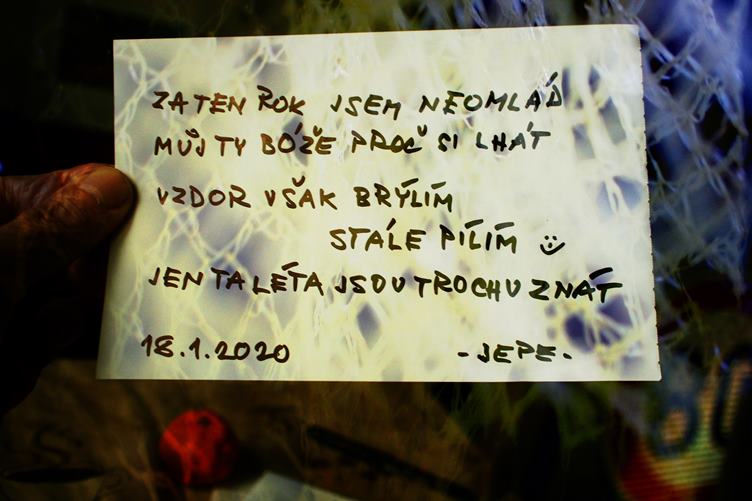 ZA TEN ROK JSEM NEOMLÁD
MŮJ TY BÓŽE PROČ SI LHÁT
VZDOR VŠAK BRÝLÍM
STÁLE PÍLÍM
JEN TA LÉTA JSOU TROCHU ZNÁT
18.1.2020 -JEPE-